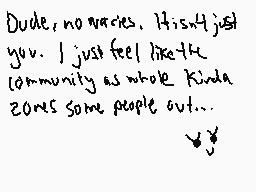 Dude, no worries. It isn't just
you. I just feel like the
community as whole kinda
zones some people out...